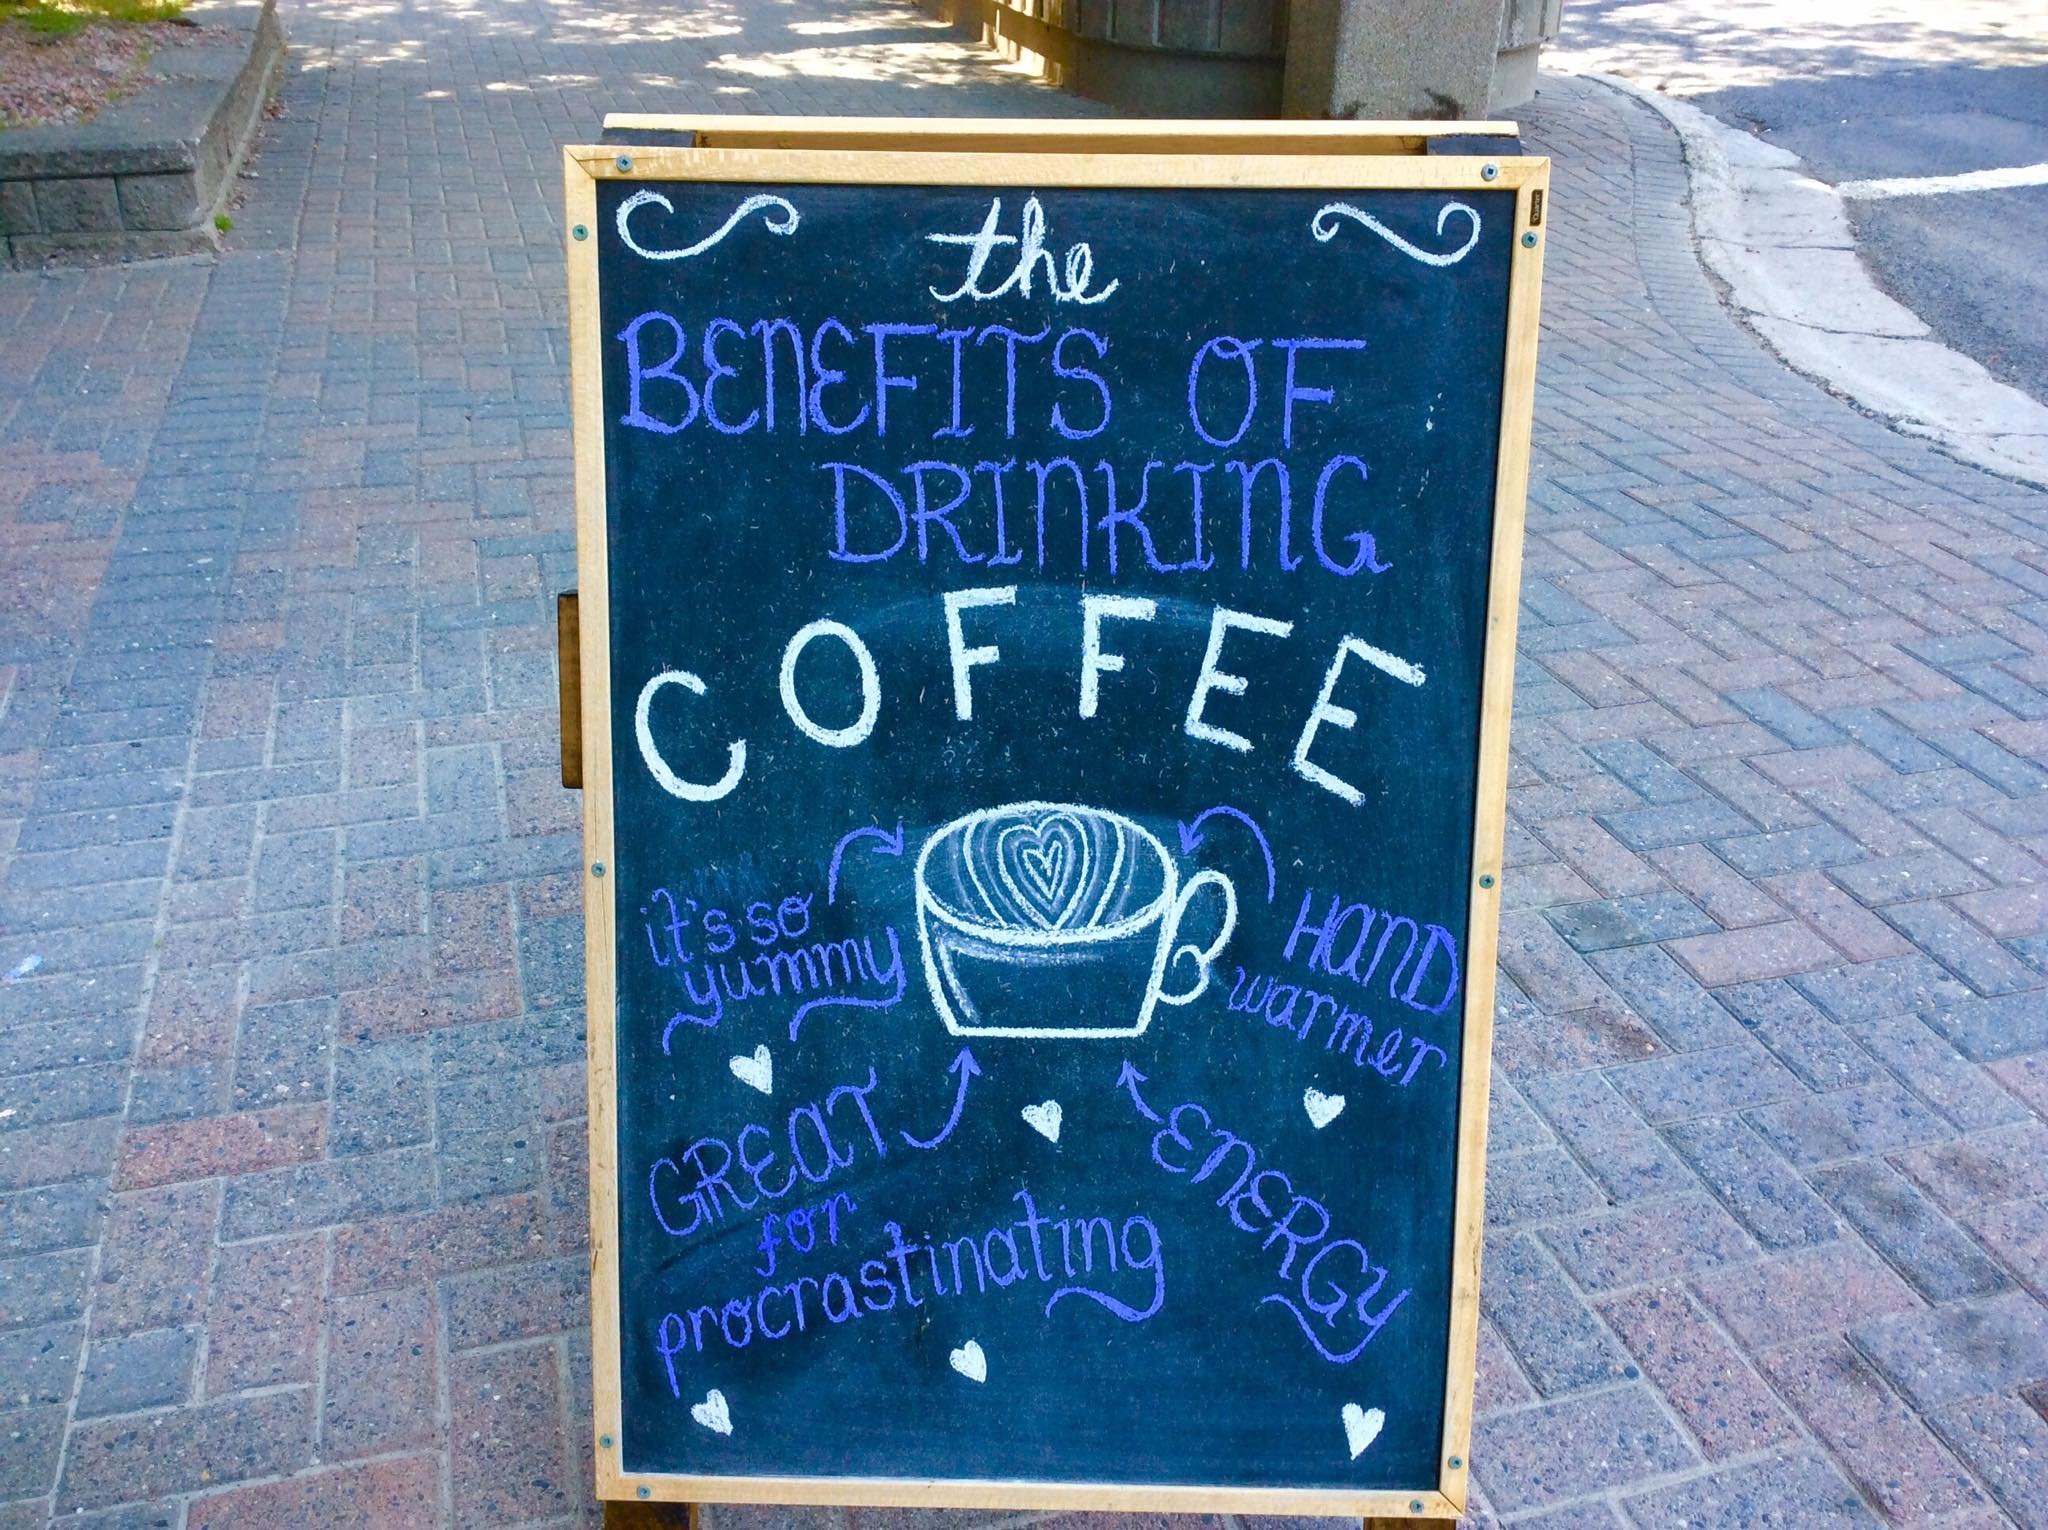 the
BENEFITS OF
DRINKING
COFFEE
it's so
yummy
HAND
warmer
GREAT
for
procrastinating
ENERGY